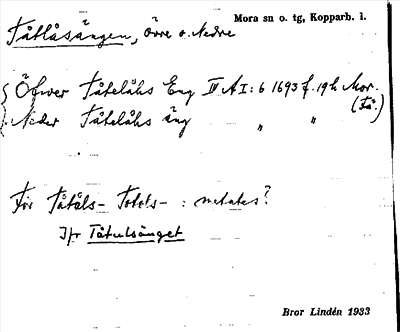 Mora sn o. tg, Kopparb. l.
Tåtlåsängen, Övre o. Nedre
Öfwer Tåtelåhs Eng IV A I: 6 1693 f. 19 h Mor.
Neder Tåtelåhs äng " " (Få.)
För Tåtåls- Totols- : metates?
Jfr Tåtulsänget
Bror Lindén 1933